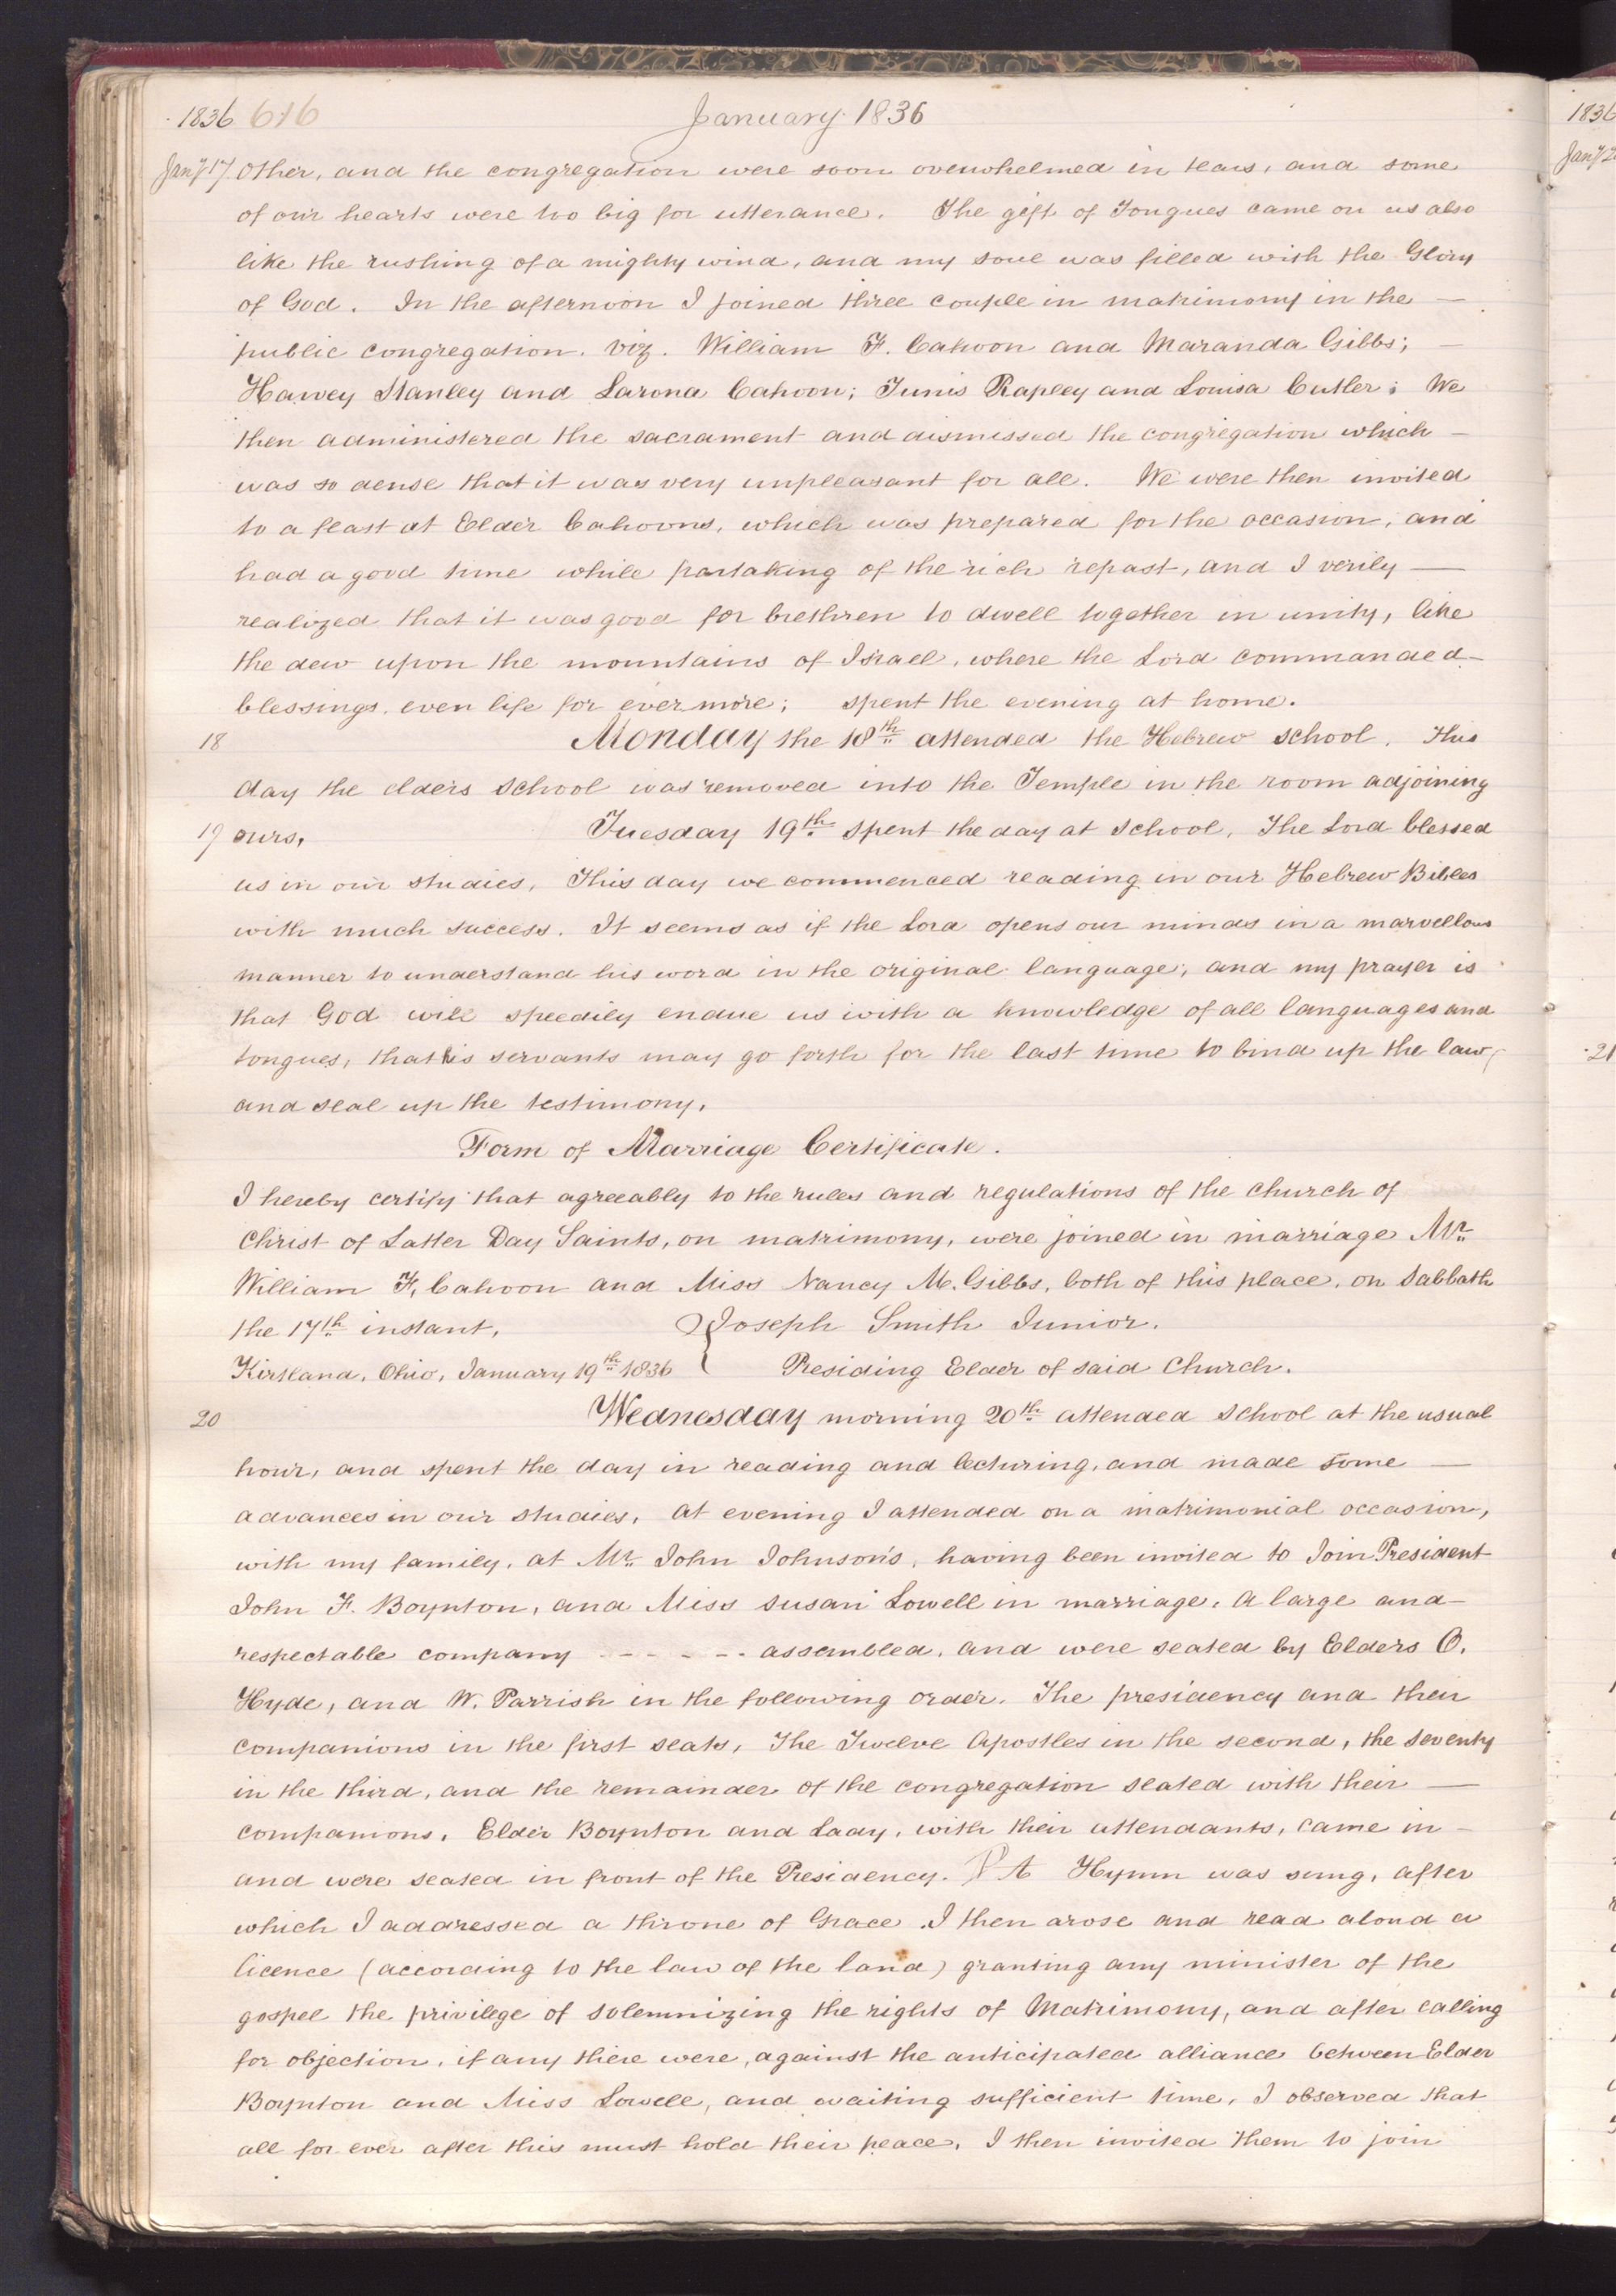 1836 616 January 1836
Jany 17 other, and the congregation were soon overwhelmed in tears, and some
of our hearts were too big for utterance. The gift of Tongues came on us also
like the rushing of a mighty wind, and my soul was filled with the Glory
of God. In the afternoon I joined three couple in matrimony in the —
public congregation. viz. William F. Cahoon and Maranda Gibbs; —
Harvey Stanley and Larona Cahoon; Tunis Rapley and Louisa Cutler; We
then administered the sacrament and dismissed the congregation which —
was so dense that it was very unpleasant for all. We were then invited
to a feast at Elder Cahoons, which was prepared for the occasion, and
had a good time while partaking of the rich repast, and I verily —
realized that it was good for brethren to dwell together in unity, like
the dew upon the mountains of Israel, where the Lord commanded —
blessings, even life for ever more; spent the evening at home.
18 Monday the 18th attended the Hebrew school. This
day the elders school was removed into the Temple in the room adjoining
19 ours. Tuesday 19th spent the day at school, The Lord blessed
us in our studies, This day we commenced reading in our Hebrew Bibles
with much success. It seems as if the Lord opens our minds in a marvellous
manner to understand his word in the original language; and my prayer is
that God will speedily endue us with a knowledge of all languages and
tongues, that his servants may go forth for the last time to bind up the law,
and seal up the testimony.
Form of Marriage Certificate.
I hereby certify that agreeably to the rules and regulations of the church of
Christ of Latter Day Saints, on matrimony, were joined in marriage Mr.
William F. Cahoon and Miss Nancy M. Gibbs, both of this place, on Sabbath
the 17th instant, } Joseph Smith Junior.
Kirtland, Ohio, January 19th 1836 Presiding Elder of said Church.
20 Wednesday morning 20th attended school at the usual
hour, and spent the day in reading and lecturing, and made some —
advances in our studies, At evening I attended on a matrimonial occasion,
with my family, at Mr. John Johnson's, having been invited to Join President
John F. Boynton, and Miss Susan Lowell in marriage, A large and —
respectable company - - - - - - assembled, and were seated by Elders O.
Hyde, and W. Parrish in the following order. The presidency and their
companions in the first seats, The Twelve Apostles in the second, the seventy
in the third, and the remainder of the congregation seated with their —
companions. Elder Boynton and Lady, with their attendants, came in —
and were seated in front of the Presidency. P A Hymn was sung, after
which I addressed a throne of Grace. I then arose and read aloud a
licence (according to the law of the land) granting any minister of the
gospel the privilege of solemnizing the rights of Matrimony, and after calling
for objection, if any there were, against the anticipated alliance between Elder
Boynton and Miss Lowell, and waiting sufficient time, I observed that
all for ever after this must hold their peace, I then invited them to join
1836
Jany 2
21